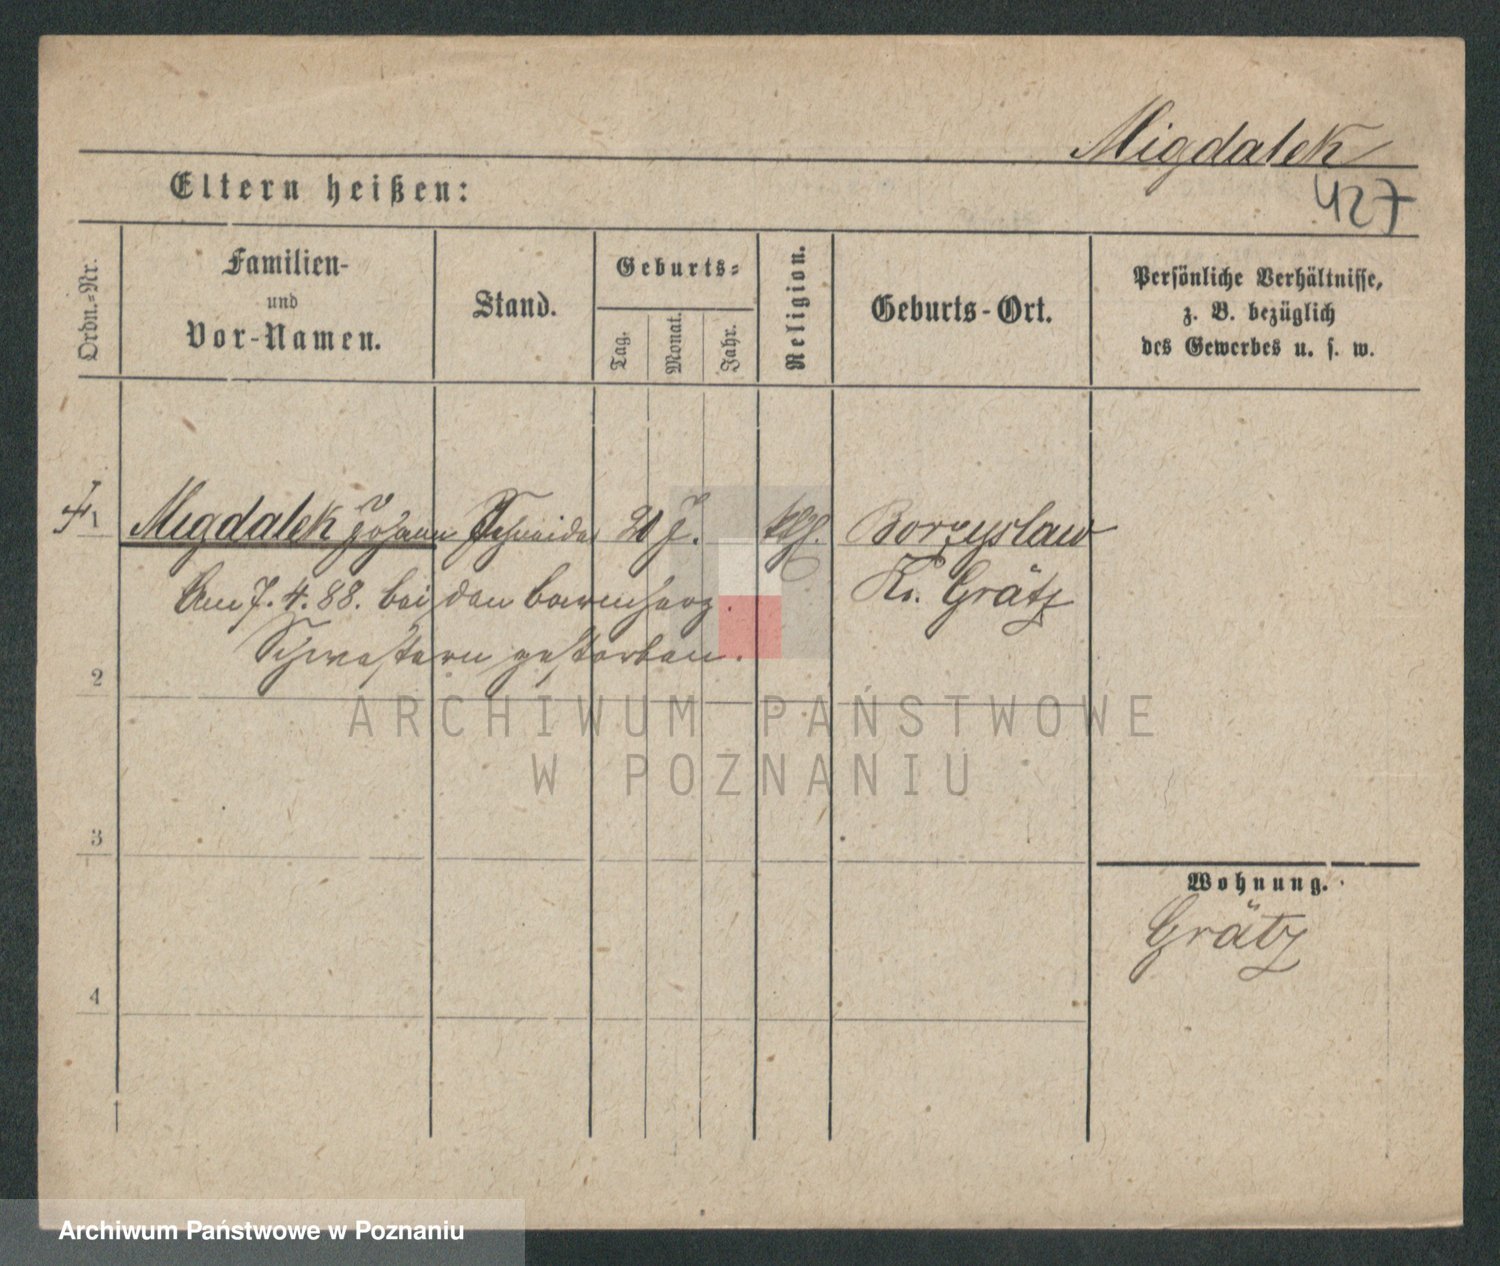 Migdalek
427
Eltern heißen:
Ordn.-Nr.
Familien-
und
Vor-Namen.
Stand.
Geburts-
Tag.
Monat.
Jahr.
Religion.
Geburts-Ort.
Persönliche Verhältnisse,
z. B. bezüglich
des Gewerbes u. s. w.
1 Migdalek Johann Schneider J. kth. Borzyslaw
Am 7. 4. 88. bei den barmherz. Kr. Grätz
Schwestern gestorben.
2
ARCHIWUM PAŃSTWOWE
W POZNANIU
3
Wohnung.
Grätz
4
Archiwum Państwowe w Poznaniu